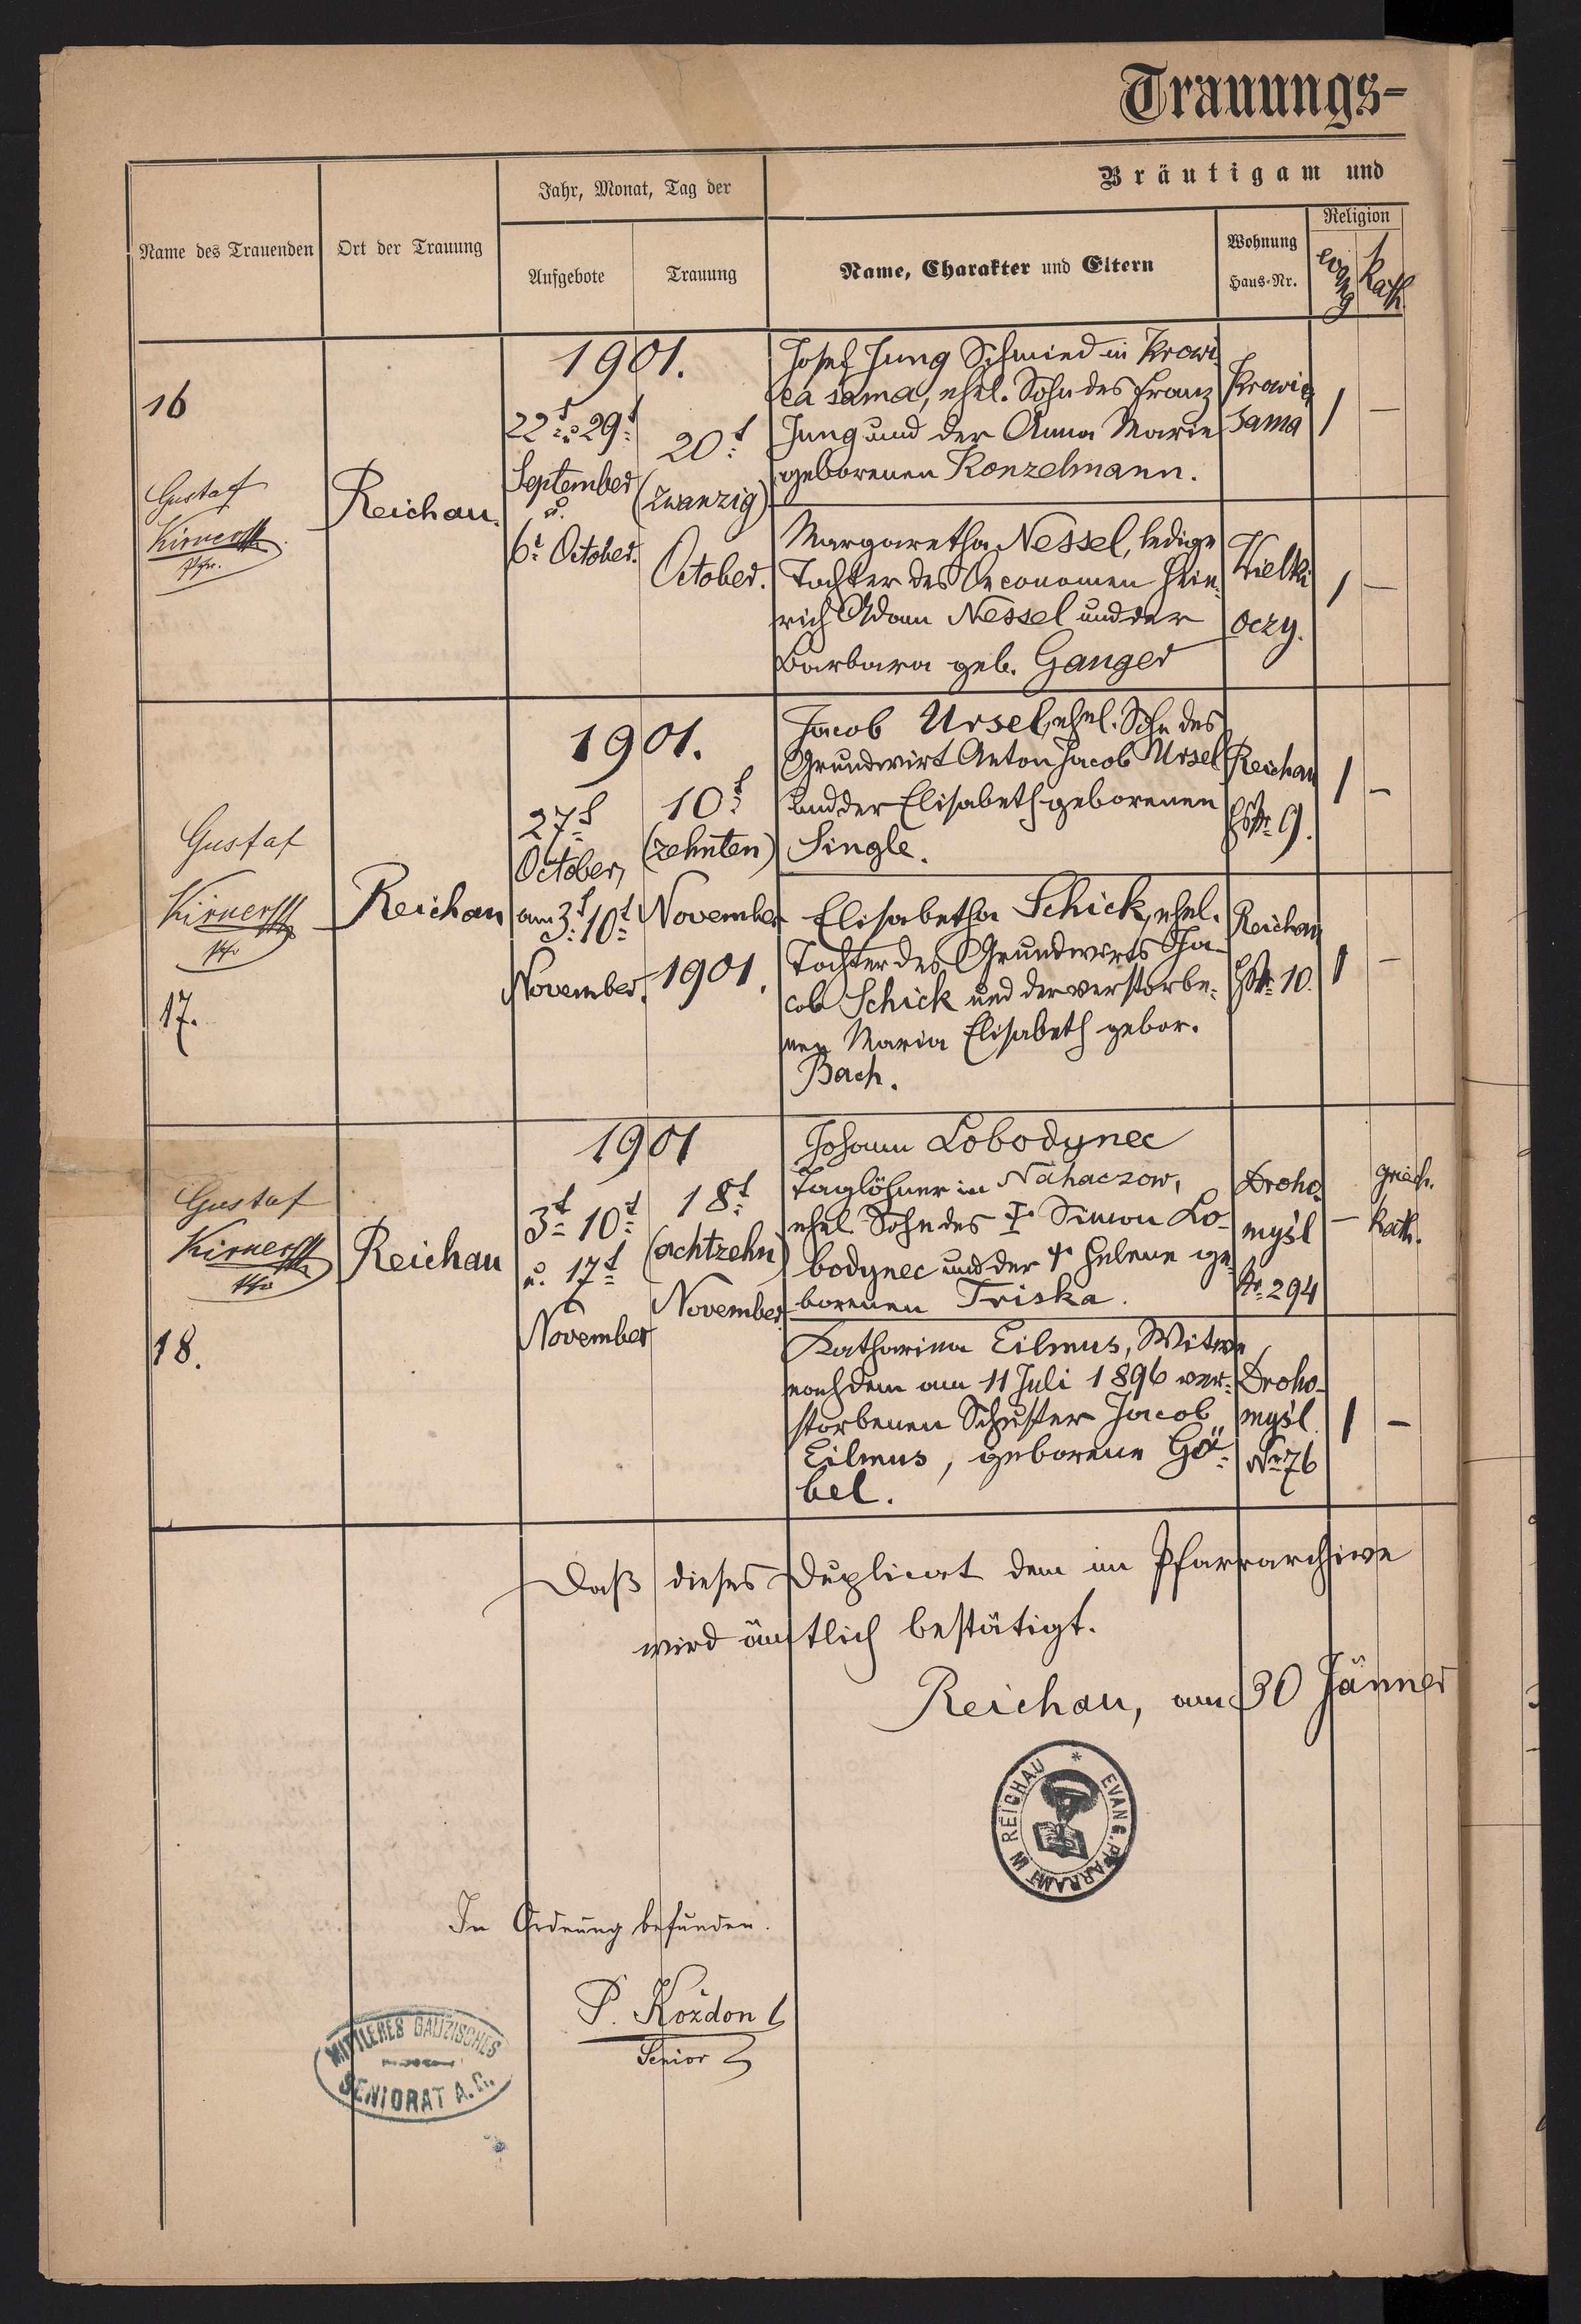 Trauungs-
Bräutigam und
Jahr, Monat, Tag der
Religion
Name des Trauenden
Ort der Trauung
Aufgebote
Trauung
Name, Charakter und Eltern
Wohnung
Haus-Nr.
evang
Kath.
16
Gustaf
Kirner
Reichau.
1901.
22t u 29t
September
u.
6t October.
20t
(zwanzig)
October.
Josef Jung Schmied in Krowi
ca sama, ehel. Sohn des Franz
Jung und der Anna Maria
geborenen Konzelmann.
Krowica
Sama
1 —
Margaretha Nessel, ledige
Tochter des Oeconomen Hein-
rich Adam Nessel und der
Barbara geb. Ganger
Wielki
oczy.
1 —
Gustaf
Kirner
17.
Reichau
1901.
27t
October,
am 3t 10t
November.
10t
(zehnten)
November
1901.
Jacob Ursel, ehel. Sohn des
Grundwirt Anton Jacob Ursel
und der Elisabeth geborenen
Single.
Reichau
HsNr 9.
1 –
Elisabetha Schick, ehel.
Tochter des Grundwirts Ja-
cob Schick und der verstorbe-
nen Maria Elisabeth gebor.
Bach.
Reichau
HsNr 10.
1 –
Gustaf
Kirner
18.
Reichau
1901
3t 10t
u. 17t
November
18t
(achtzehn)
November.
Johann Lobodynec
Taglöhner in Nahaczow,
ehel. Sohn des † Simon Lo-
bodynec und der † Helene ge-
borenen Triska.
Droho-
myśl
No 294
— griech.
kath.
Katharina Eilmus, Witwe
nach dem am 11 Juli 1896 ver-
storbenen Schuster Jacob
Eilmus, geborene Gö-
bel.
Droho-
myśl
Nr 76
1 –
Daß dieses Duplicat dem im Pfarrarchive
wird ämtlich bestätigt.
Reichau, am 30 Jänner
EVANG. PFARRAMT IN REICHAU *
In Ordnung befunden.
P. Kożdon
Senior
MITTLERES GALIZISCHES
SENIORAT A. C.